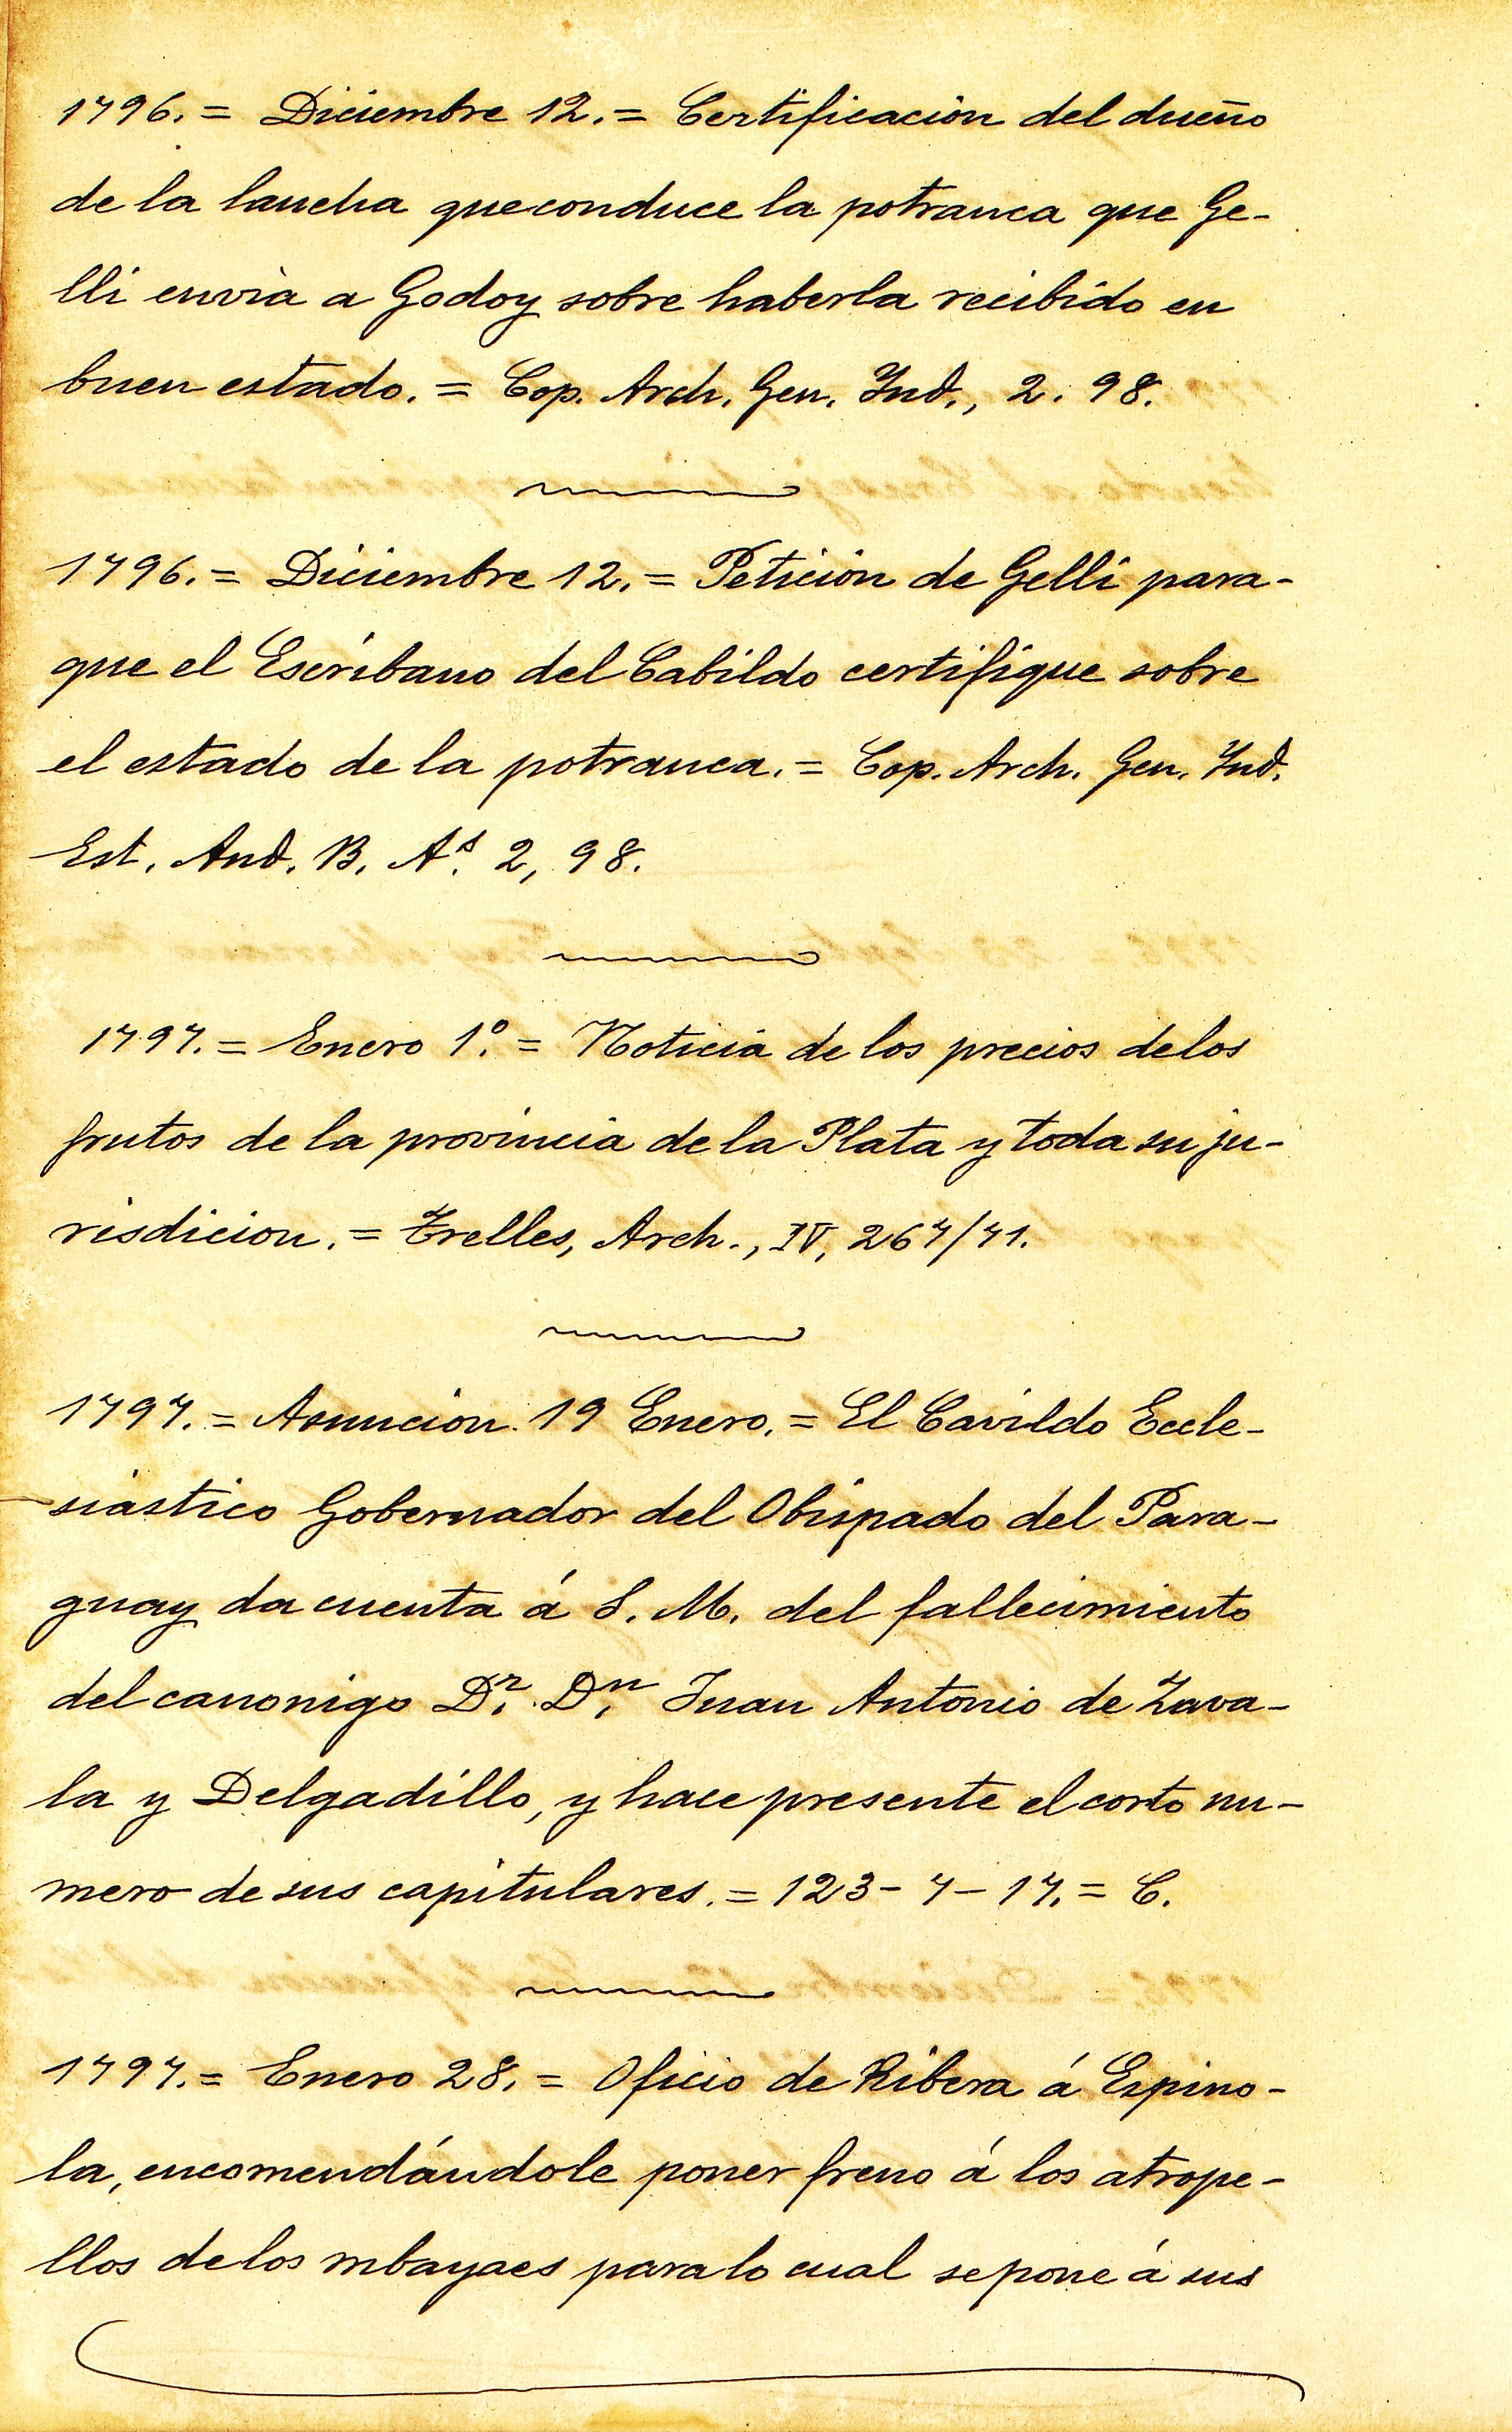 1796. = Diciembre 12. = Certificación del dueño
de la laucha que conduce la potranca que Ge-
lli envia a Godoy sobre haberla recibido en
buen estado. = Cop. Arch. Gen. Ind., 2. 98.
1796. = Diciembre 12. = Petición de Gelli para-
que el Escribano del Cabildo certifique sobre
el estado de la potranca. = Cop. Arch. Gen. Ind.
Est. And. B. Aˢ. 2, 98.
1797. = Enero 1º. = Noticia de los precios de los
frutos de la provincia de la Plata y toda su ju-
risdicion. = Trelles, Arch., IV, 267/71.
1797. = Asuncion. 19 Enero. = El Cavildo Ecle-
siástico Gobernador del Obispado del Para-
guay da cuenta á S. M. del fallecimiento
del canonigo Dʳ. Dⁿ. Juan Antonio de Zava-
la y Delgadillo, y hace presente el corto nu-
mero de sus capitulares. = 123 - 7 - 17. = C.
1797. = Enero 28. = Oficio de Ribera á Espino-
la, encomendándole poner freno á los atrope-
llos de los mbayaes para lo cual se pone á sus